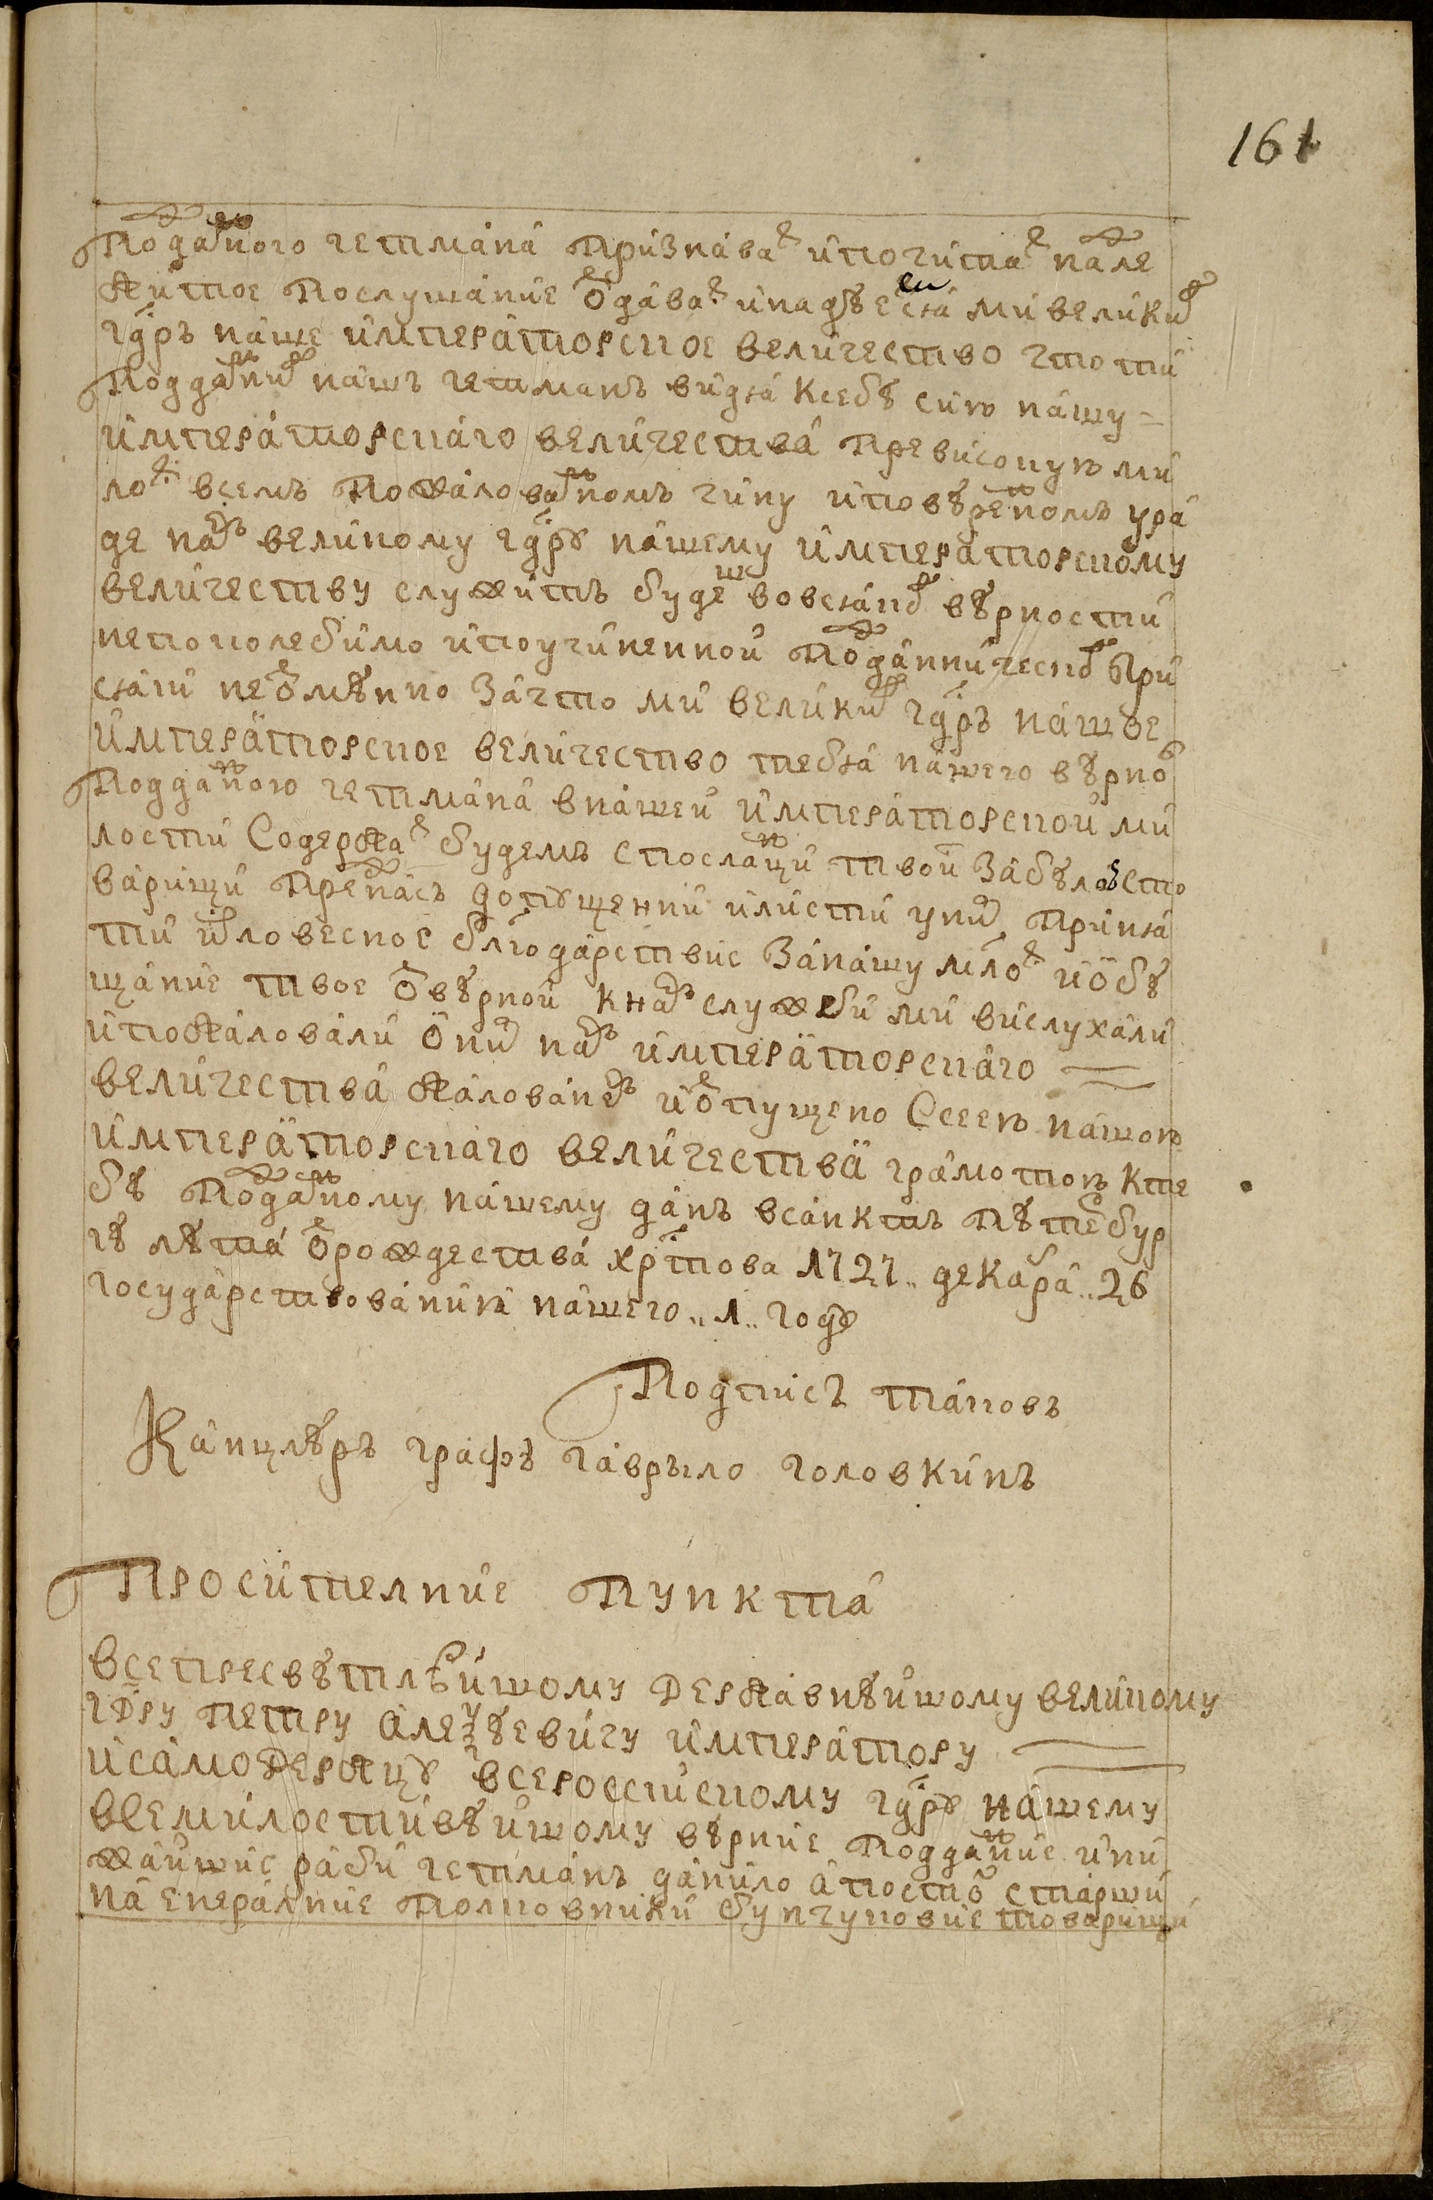 161
Подданого гетмана признават и почитат нале
житое послушание отдават и надѣемся ми великий
гдрь наше императорское величество что ти
подданий нашъ гетманъ видя ксебѣ сию нашу
императорскаго величества превисокую ми
лост всемъ пожалованномъ чину и повѣренномъ уря
де намъ великому гдрꙋ нашему императорскому
величеству служитъ будешъ вовсякой вѣрности
непоколебимо и поучиненной подданнической при
сяги неотмѣнно за что ми великий гдрь нашое
императорское величество тебя нашего вѣрного
подданного гетмана внашей императорской ми
лости содержат будемъ спосланний твой Забѣлов сто
варищи пред насъ допꙋщенни и листи у них приня
ти и словесное блгодарствие за нашу млост и обѣ
щание твое о вѣрной к намъ служби ми вислухали
и пожаловали о них намъ императорскаго
величества жалованемъ и отпущено Ссеею нашою
императорскаго величества грамотою кте
бѣ подданному нашему данъ в санктъ пѣтербур
гѣ лѣта от рождества хртова 1727 декабра 26
государствования нашего 1 годꙋ
Подписъ таковъ
Канцлѣръ графъ гаврыло головкинъ
Просителние пункта
всепресвѣтлѣйшому державнѣйшому великому
гдру петру алеѯѣевичу императору
и самодержцꙋ всероссийскому гдрꙋ нашему
всемилостивѣйшому вѣрние подданние и ни
жайшие раби гетманъ данило апостол старши
на енералние полковники бунчуковие товарищи